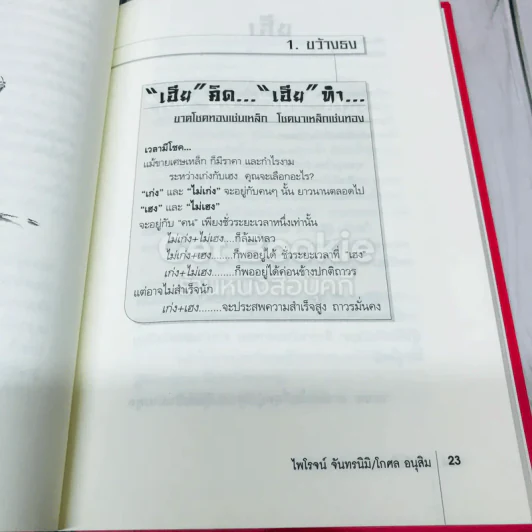 1. ขว้างธง
"เฮีย" คิด... "เฮีย" ทำ...
ขาดโชคทองเช่นเหล็ก โชคมาเหล็กเช่นทอง
เวลามีโชค...
แม้ขายเศษเหล็ก ก็มีราคา และกำไรงาม
ระหว่างเก่งกับเฮง คุณจะเลือกอะไร?
"เก่ง" และ "ไม่เก่ง" จะอยู่กับคนๆ นั้น ยาวนานตลอดไป
"เฮง" และ "ไม่เฮง"
จะอยู่กับ "คน" เพียงชั่วระยะเวลาหนึ่งเท่านั้น
ไม่เก่ง+ไม่เฮง....ก็ล้มเหลว
ไม่เก่ง+เฮง........ก็พออยู่ได้ ชั่วระยะเวลาที่ "เฮง"
เก่ง+ไม่เฮง........ก็พออยู่ได้ค่อนข้างปกติถาวร
แต่อาจไม่สำเร็จนัก
เก่ง+เฮง........จะประสพความสำเร็จสูง ถาวรมั่นคง
ไพโรจน์ จันทรนิมิ/โกศล อนุสิม 23